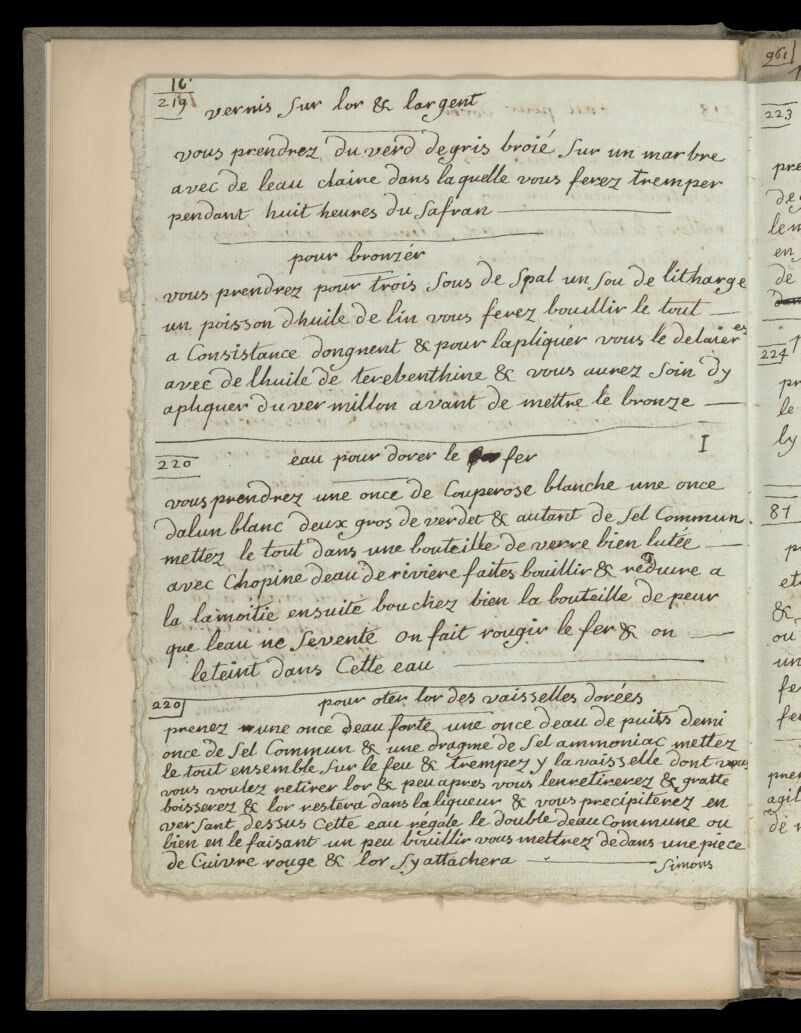 16.
219 vernis sur lor & largent
vous prendrez du verd degris broié sur un marbre
avec de leau claire dans laquelle vous ferez tremper
pendant huit heures du safran
pour bronzér
vous prendrez pour trois sous de spal un sou de litharge
un poisson dhuile de lin vous ferez bouillir le tout
a Consistance dongnent & pour lapliquér vous le delaierés
avec de lhuile de terebenthine & vous aurez soin dy
apliquer du vermillon avant de mettre le bronze
I
220 eau pour dorer le fer
vous prendrez une once de Couperose blanche une once
dalun blanc deux gros de verdet & autant de sel Commun
mettez le tout dans une bouteille de verre bien lutée
avec Chopine deau de riviere faites bouillir & reduire a
la lamoitie ensuite bouchez bien la bouteille de peur
que leau ne sevente on fait rougir le fer & on
leteint dans Cette eau
220 pour oter lor des vaisselles dorées
prenez une once deau forte une once deau de puits demi
once de sel Commun & une dragme de sel ammoniac mettez
le tout ensemble sur le feu & trempez y la vaisselle dont vous
vous voulez retirer lor & peu apres vous lenretirerez & gratte
boisserez & lor restera dans la liqueur & vous precipiterez en
versant dessus Cette eau régale le double deau Commune ou
bien en le faisant un peu bouillir vous mettrez dedans une piece
de Cuivre rouge & lor sy attachera
simons
961
223
pre
lem
en
de
224
pr
le
ly
81
p
et
&
ou
un
fe
fe
pren
agit
de